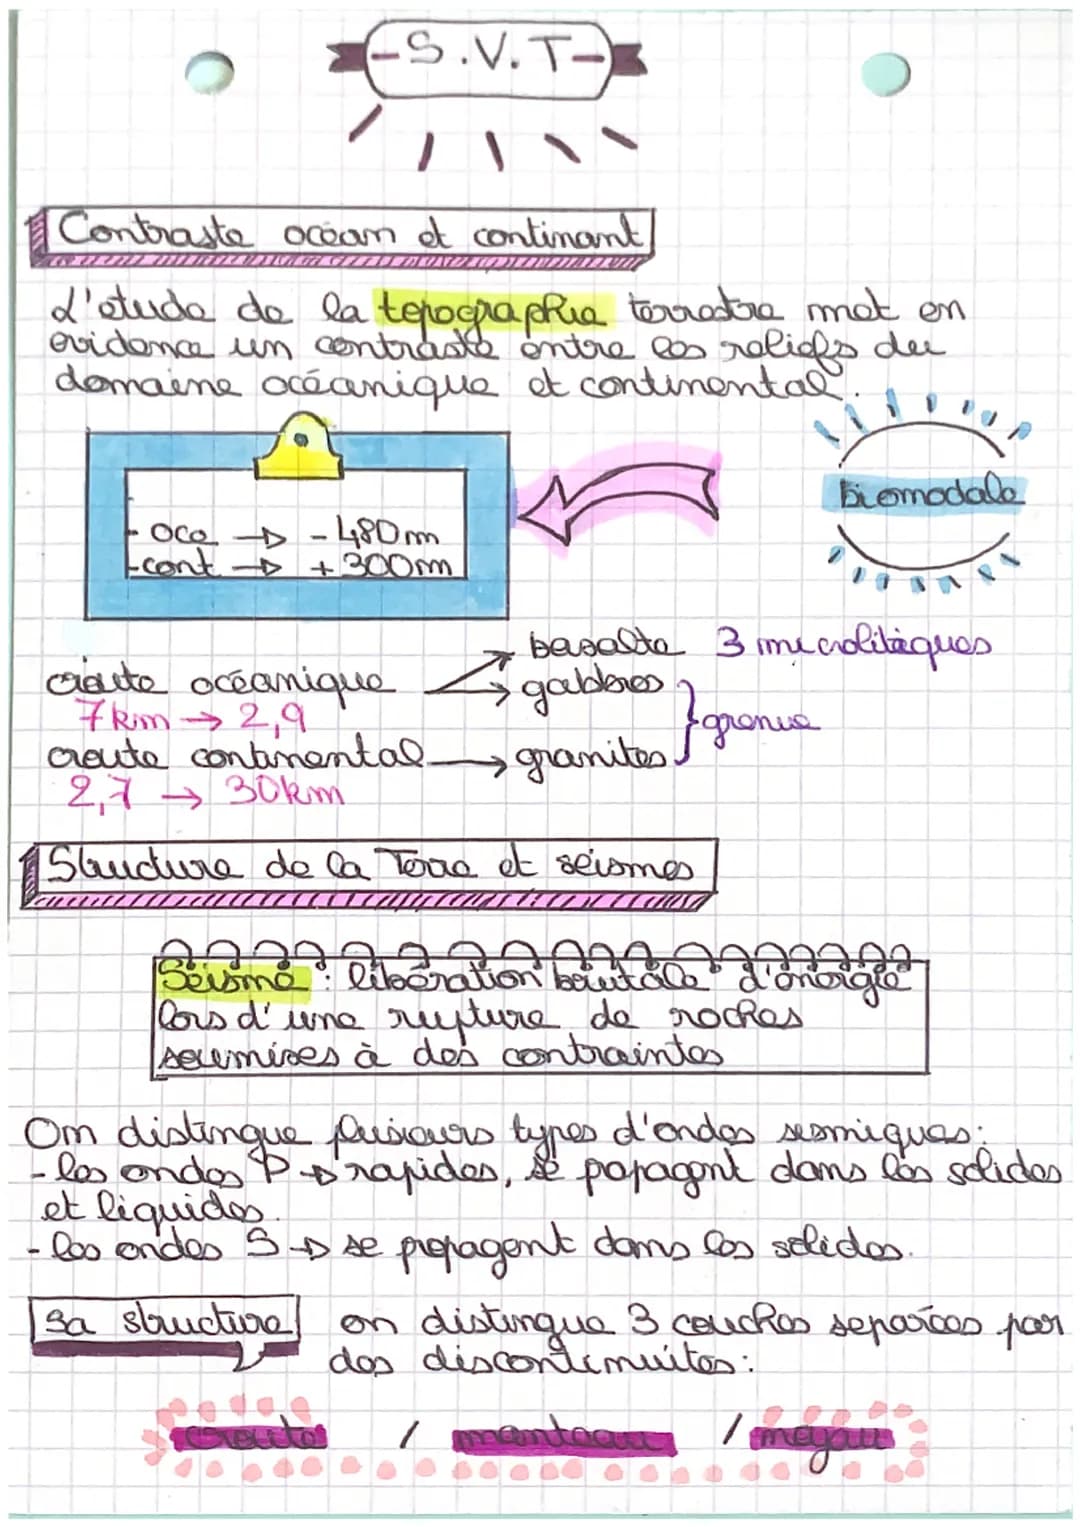 -S.V.T-
Contraste océan et continant
L'étude de la topographie terrestre met en
évidence un contraste entre les reliefs du
domaine océanique et continental.
biomodale
- oce → - 480m
- cont → + 300m
basalte 3 microlitiques
croute océanique
gabbros
7km → 2,9
grenue
croute continental → granites
2,7 → 30km
Structure de la Terre et séismes
Séisme : libération brutale d'énergie
lors d'une rupture de roches
soumises à des contraintes
On distingue plusieurs types d'ondes sismiques:
- les ondes P → rapides, se propagent dans les solides
et liquides.
- les ondes S → se propagent dans les solides.
Sa structure
on distingue 3 couches séparées par
des discontinuités:
croute / manteau / noyau